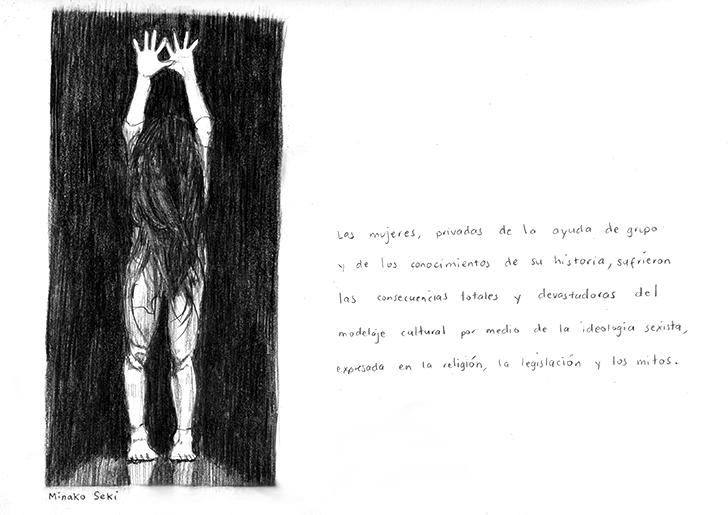 Las mujeres, privadas de la ayuda de grupo
y de los conocimientos de su historia, sufrieron
las consecuencias totales y devastadoras del
modelaje cultural por medio de la ideología sexista,
expresada en la religión, la legislación y los mitos.
Minako Seki